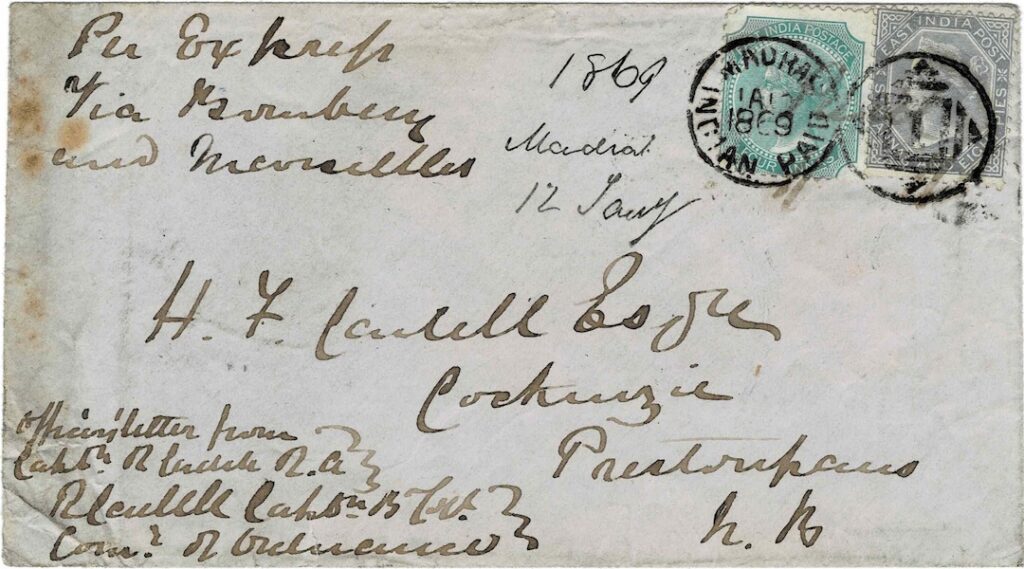 Per Express
Via Bombay
and Marseilles
1869
Madras
12 Jany
INDIA POSTAGE
MADRAS
JA
1869
INDIAN PAID
EAST INDIA POST
H. F. Cadell Esqre
Cockenzie
Prestonpans
N. B
Officers letter from
Captn. R Cadell R. A
R Cadell Captn
Comr. of Ordnance